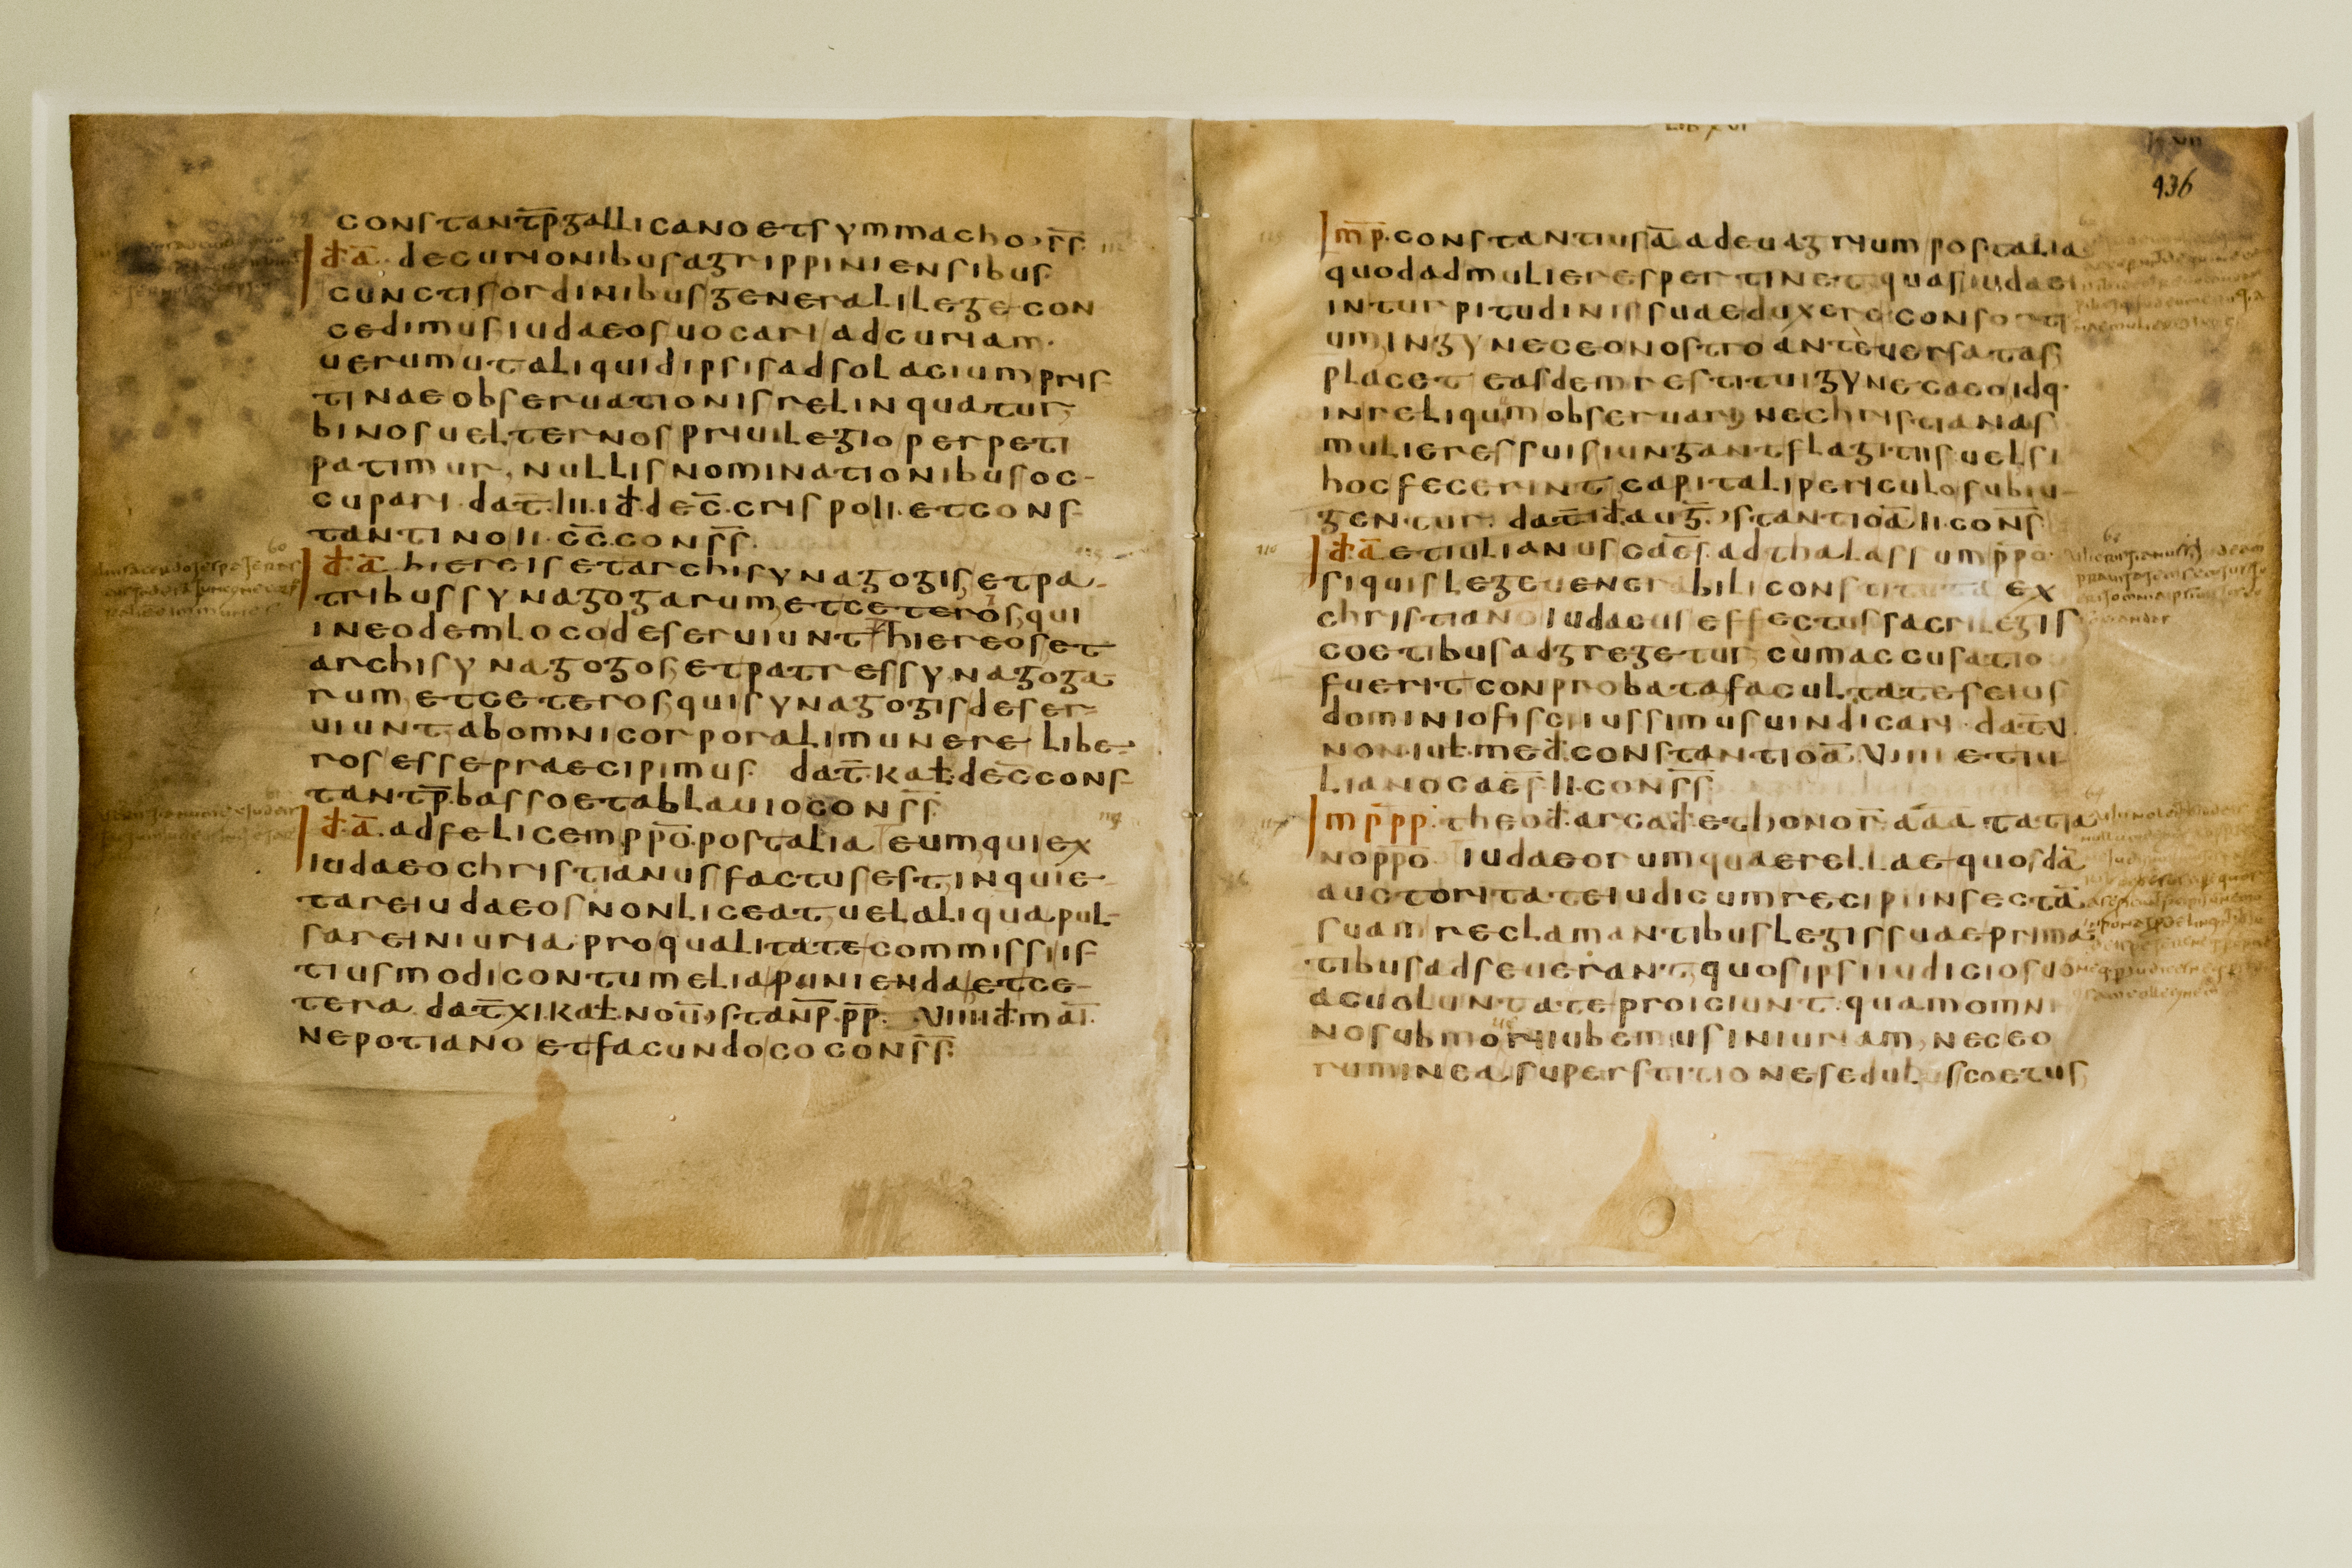 constant̅p̅ gallicano et symmacho s̅s̅
i̅d̅·a̅· decurionibus agrippiniensibus
cunctis ordinibus generali lege con
cedimus iudaeos uocari ad curiam·
uerum ut aliquid ipsis ad solacium pris
tinae obseruationis relinquatur
binos uel ternos priuilegio perpeti
patimur nullis nominationibus oc
cupari dat̅·III·id·dec̅·crispo II·et cons
tantino II·c̅c̅·cons̅s̅·
i̅d̅·a̅ hiereis et archisynagogis et pa
tribus synagogarum et ceteros qui
in eodem loco deseruiunt hiereos et
archisynagogos et patres synagoga
rum et ceteros qui synagogis deser
uiunt ab omni corporali munere libe
ros esse praecipimus dat̅·kal·dec̅ cons
tant̅p̅·basso et ablauio cons̅s̅·
i̅d̅·a̅·ad felicem p̅p̅o̅·post alia eum qui ex
iudaeo christianus factus est inquie
tare iudaeos non liceat uel aliqua pul
sare iniuria pro qualitate commissi is
tiusmodi contumelia punienda et ce
tera dat̅ XI·kal·nou̅ stan̅p̅·p̅p̅· VIIII id mai̅·
nepotiano et facundo co cons̅s̅·
LIB XVI
436
Imp̅·constantius a̅ ad euagrium post alia
quod ad mulieres pertinet quas iudaei
in turpitudinis suae duxere consorti
um in gyneceo nostro ante uersatas
placet easdem restitui gynecaeo idq·
in reliqum obseruari ne christianas
mulieres suis iungant flagitiis uel si
hoc fecerint capitali periculo subiu
gentur· dat̅ id·aug̅ stantio a̅ II·cons̅
i̅d̅·a̅ et iulianus caes̅·ad thalassum p̅p̅o̅·
si quis lege uenerabili constituta ex
christiano iudaeus effectus sacrilegis
coetibus adgregetur cum accusatio
fuerit conprobata facultates eius
dominio fisci iussimus uindicari dat̅ V
non·iul·med·constantio a̅ VIIII et iu
liano caes̅ II·cons̅s̅
Imp̅p̅p̅·theod·arcad·et honor̅ a̅a̅a̅ tatia
no p̅p̅o̅ iudaeorum quaerellae quosda̅
auctoritate iudicum recipi in secta̅
suam reclamantibus legis suae prima
tibus adseuerant quos ipsi iudicio suo
ac uoluntate proiciunt quam omni
no submoueri iubemus iniuriam nec eo
rum in ea superstitione sedulus coetus